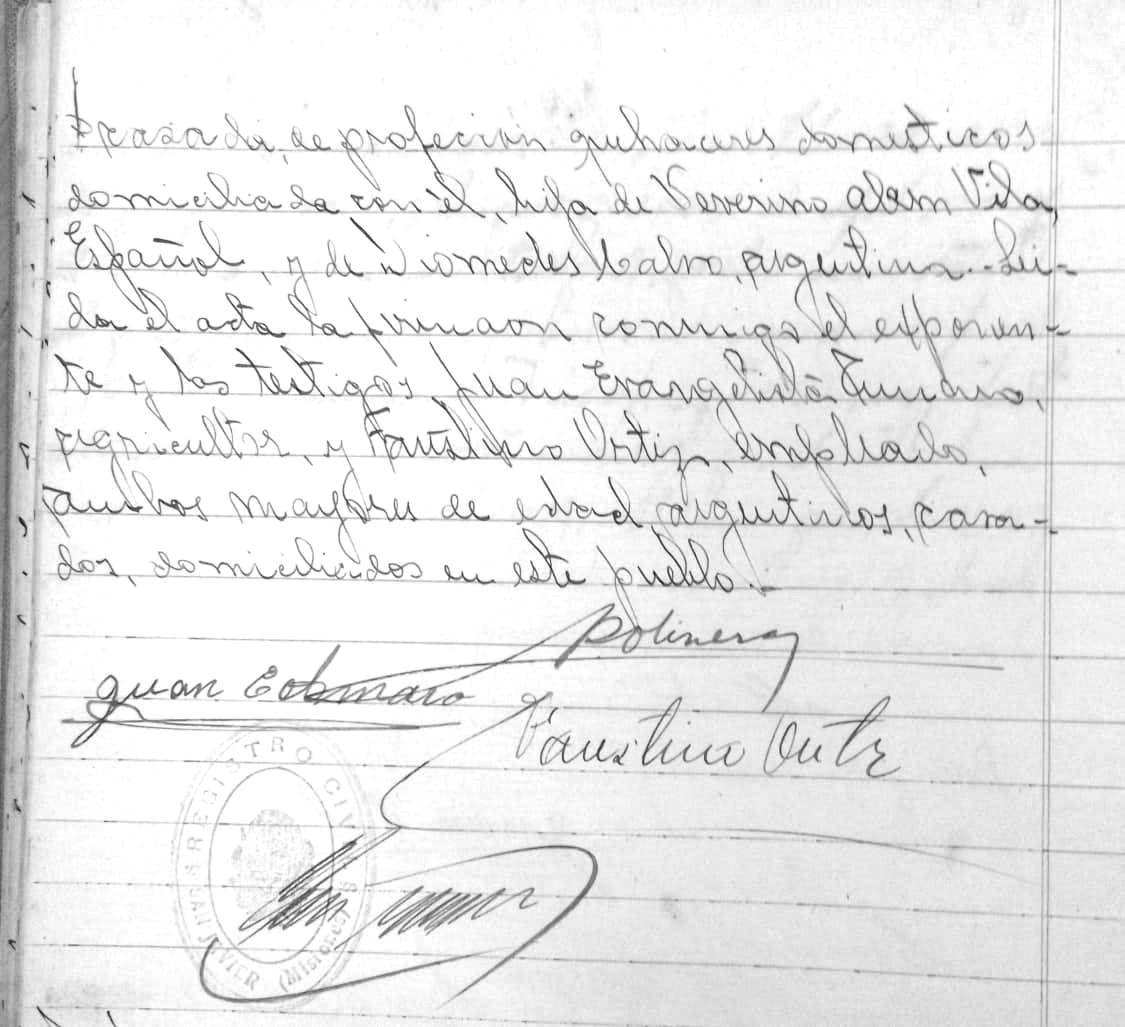 casada, de profecion quehaceres domesticos
domiciliada con él, hija de Severino Alem Vila,
Español, y de Diomedes Calvo, argentina.- Lei-
da el acta la firmaron conmigo el exponen-
te y los testigos Juan Evangelista
agricultor, y Faustino Ortiz, empleado,
ambos mayores de edad, argentinos, casa-
dos, domiciliados en este pueblo.-
Juan
Faustino Ortiz
REGISTRO CIVIL
SAN JAVIER (MISIONES)